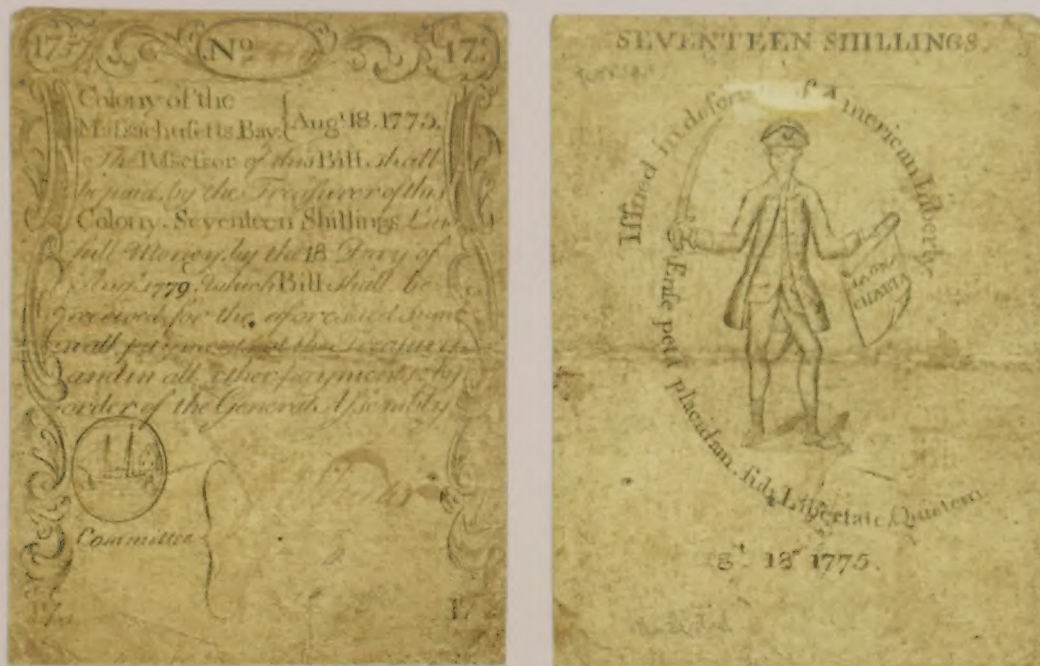 17s Nº 17s
Colony of the
Massachusetts Bay. { Augt. 18. 1775.
The Possessor of this Bill shall
be paid, by the Treasurer of this
Colony, Seventeen Shillings Law
full Money, by the 18 Day of
Augt. 1779, which Bill shall be
received for the aforesaid sum
in all payments at the Treasury
and in all other payments by
order of the General Assembly
Committee
17
SEVENTEEN SHILLINGS.
Issued in defence of American Liberty
Ense petit placidam, sub Libertate, Quietem
MAGNA
CHARTA
18 1775.